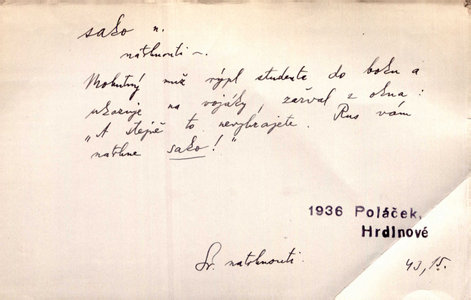 sako n.
natrhnouti ~.
Mohutný muž rýpl studenta do boku a
ukazuje na vojáky, zařval z okna:
„A stejně to nevyhrajete. Rus vám
natrhne sako!"
1936 Poláček,
Hrdinové
Sr. natrhnouti.
43, 15.